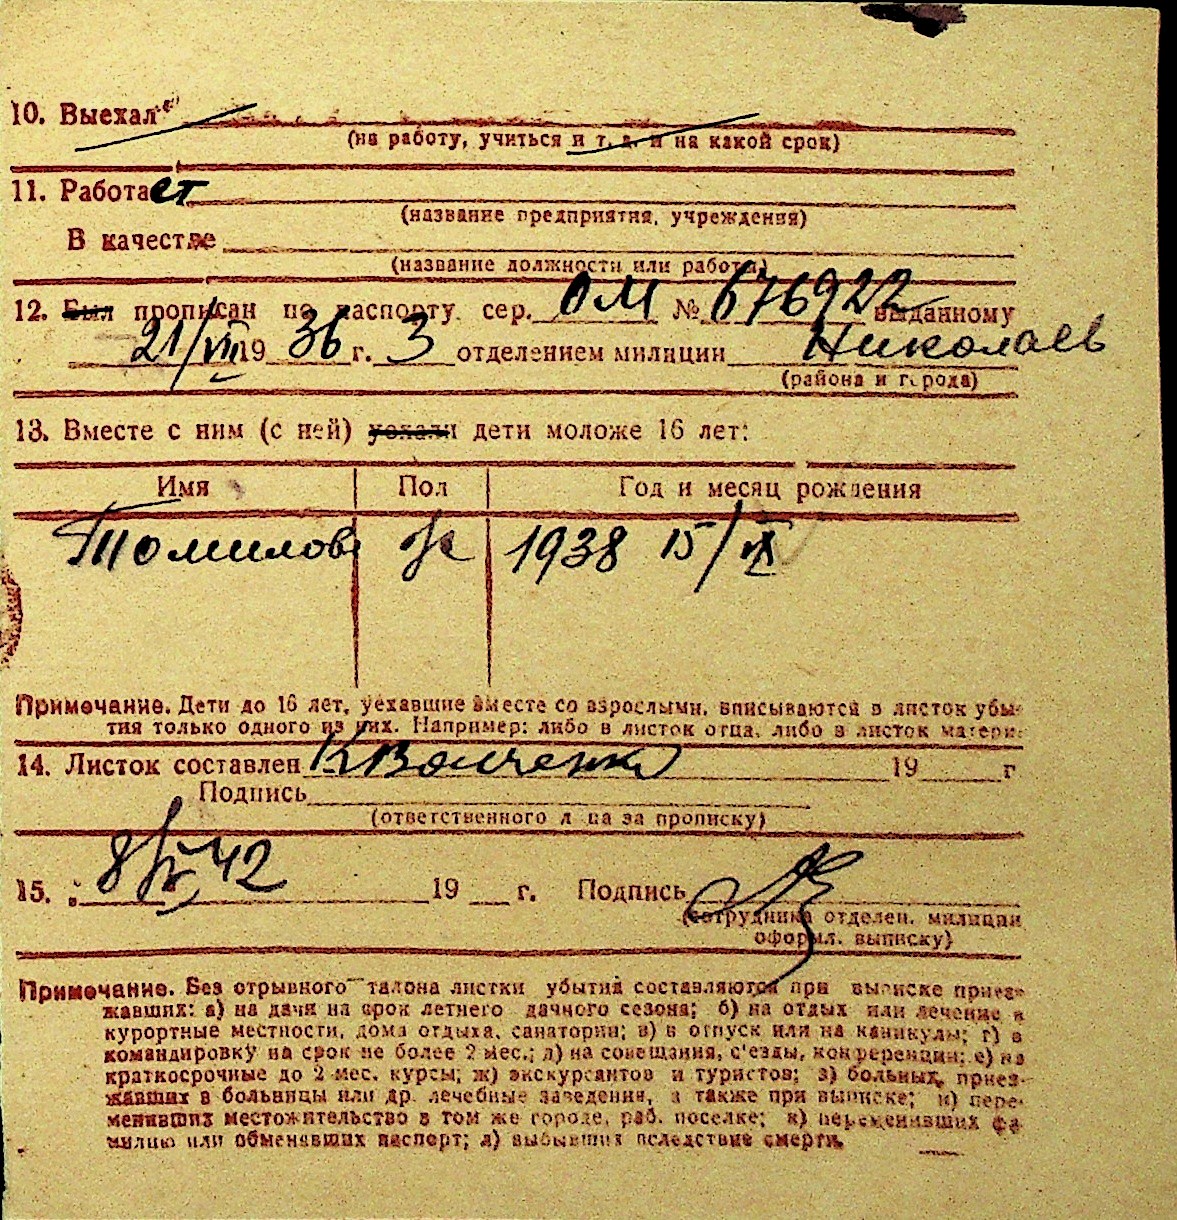 10. Выехал
(на работу, учиться и т. д. и на какой срок)
11. Работает
(название предприятия, учреждения)
В качестве
(название должности или работы)
12. Был прописан по паспорту сер. ОМ № 676922 выданному
21/VIII 1936 г. 3 отделением милиции Николаев
(района и города)
13. Вместе с ним (с ней) уехали дети моложе 16 лет:
Имя Пол Год и месяц рождения
ж 1938 15/IX
Примечание. Дети до 16 лет, уехавшие вместе со взрослыми, вписываются в листок убы-
тия только одного из них. Например: либо в листок отца, либо в листок матери.
14. Листок составлен 19 г
Подпись
(ответственного лица за прописку)
15. 8/IV 42 19 г. Подпись
(сотрудника отделен. милиции
оформл. выписку)
Примечание. Без отрывного талона листки убытия составляются при выписке приез-
жавших: а) на дачи на срок летнего дачного сезона; б) на отдых или лечение в
курортные местности, дома отдыха, санатории; в) в отпуск или на каникулы; г) в
командировку на срок не более 2 мес.; д) на совещания, с'езды, конференции; е) на
краткосрочные до 2 мес. курсы; ж) экскурсантов и туристов; з) больных, приез-
жавших в больницы или др. лечебные заведения, а также при выписке; и) пере-
менивших местожительство в том же городе, раб. поселке; к) переменивших фа-
милию или обменявших паспорт; л) выбывших вследствие смерти.